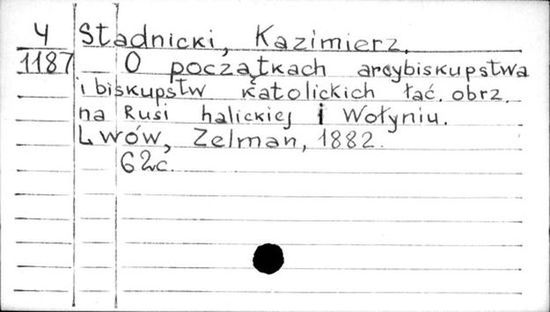 Ч Stadnicki, Kazimierz.
1187 O początkach arcybiskupstwa
i biskupstw katolickich łać. obrz.
na Rusi halickiej i Wołyniu.
Lwów, Zelman, 1882.
62c.